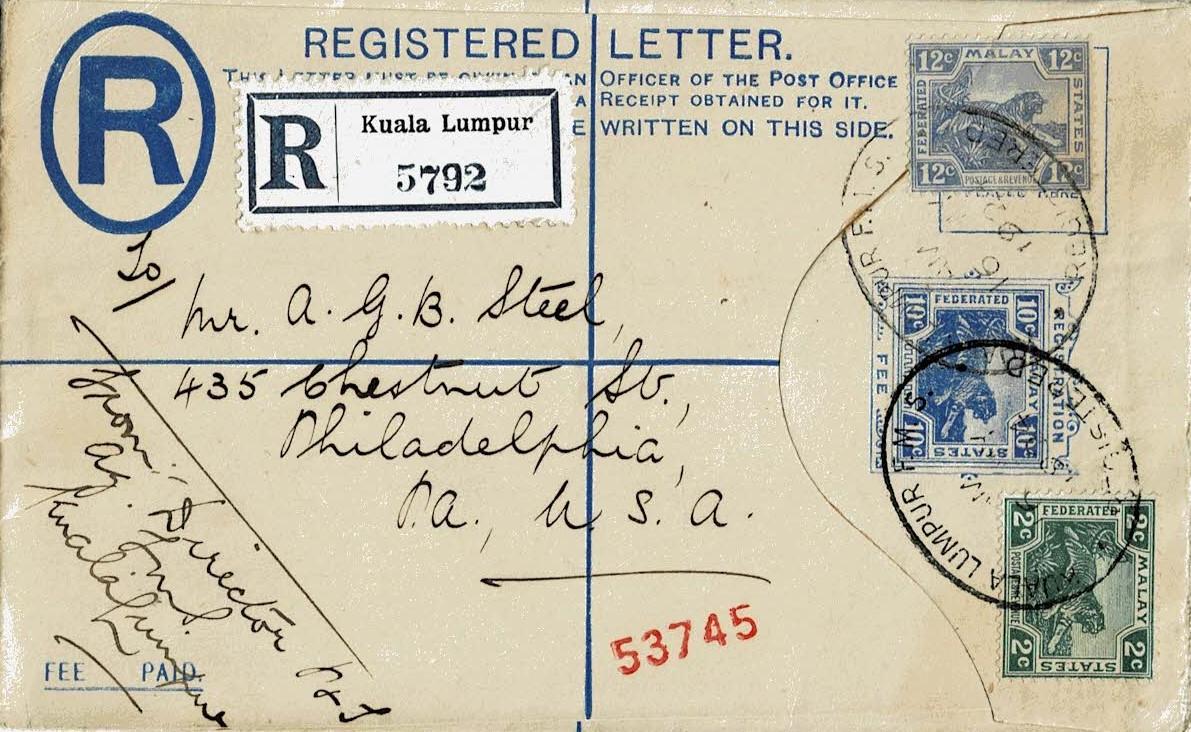 R
REGISTERED LETTER.
THIS LETTER MUST BE AN OFFICER OF THE POST OFFICE
A RECEIPT OBTAINED FOR IT.
E WRITTEN ON THIS SIDE.
R Kuala Lumpur
5792
12c MALAY 12c
FEDERATED
STATES
12c POSTAGE & REVENUE 12c
To/
Mr. A. G. B. Steel,
435 Chestnut St.,
Philadelphia,
Pa., U. S. A.
From:
Director
Kuala Lumpur
FEE PAID.
53745
REGISTRATION
FEE
10c FEDERATED 10c
MALAY
10c STATES 10c
KUALA LUMPUR F.M.S.
REGISTERED
2c FEDERATED 2c
MALAY
2c STATES 2c